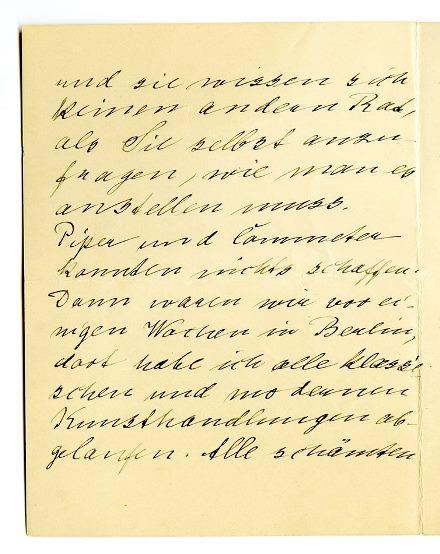 und sie wissen sich
keinen andern Rat,
als Sie selbst anzu
fragen, wie man es
anstellen muss.
Piper und Commeter
konnten nichts schaffen.
Dann waren wir vor ei-
nigen Wochen in Berlin,
dort habe ich alle klassi
schen und modernen
Kunsthandlungen ab-
gelaufen. Alle schämten